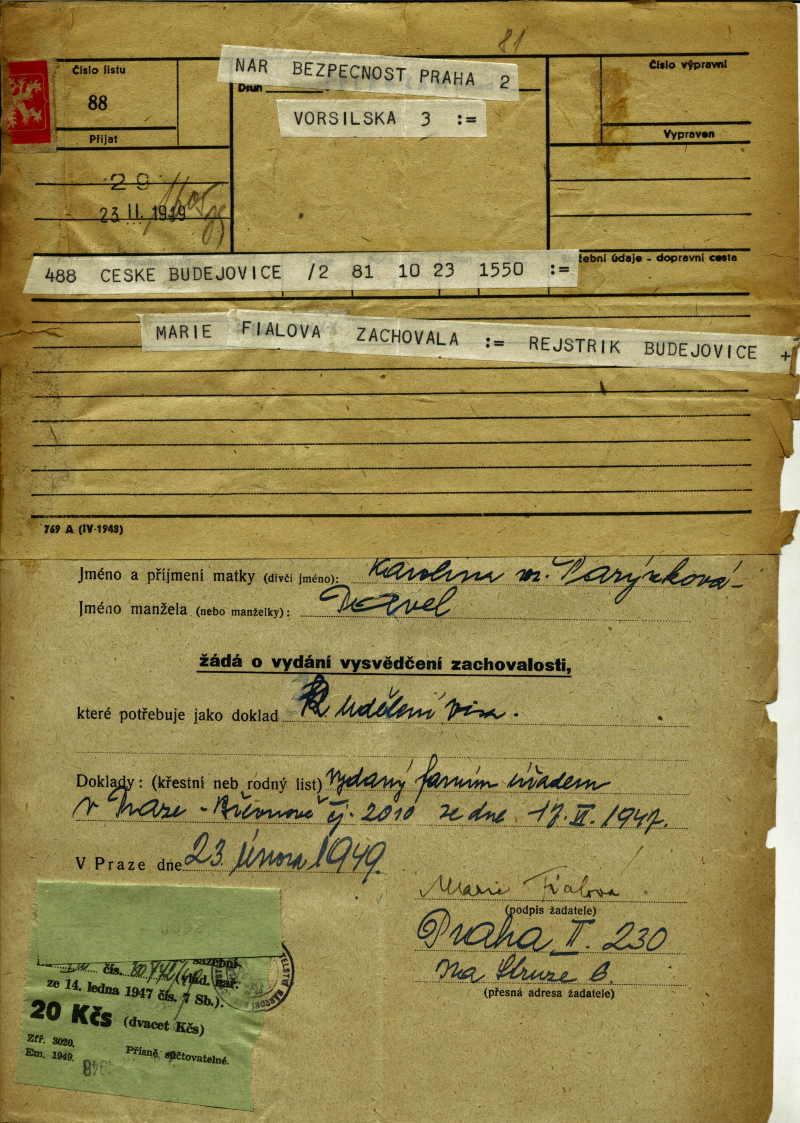 81
Číslo listu
88
Přijat
NAR BEZPECNOST PRAHA 2
Druh
VORSILSKA 3 :=
Číslo výpravní
Vypraven
29
23 II. 1949
488 CESKE BUDEJOVICE /2 81 10 23 1550 :=
žební údaje - dopravní cesta
MARIE FIALOVA ZACHOVALA := REJSTRIK BUDEJOVICE +
769 A (IV-1948)
Jméno a příjmení matky (dívčí jméno): Karolina roz. Parýzková
Jméno manžela (nebo manželky): Pavel
žádá o vydání vysvědčení zachovalosti,
které potřebuje jako doklad K udělení visa.
Doklady: (křestní neb rodný list) vydaný farním úřadem
v Praze - Břevnově čj. 2010 ze dne 17. VI. 1947.
V Praze dne 23. února 1949.
Marie Fialova
(podpis žadatele)
Praha II. 230
Na Struze 6.
(přesná adresa žadatele)
sazební.
čís. (vlád. nař.
ze 14. ledna 1947 čís. 7 Sb.).
20 Kčs (dvacet Kčs)
Zřř. 3020.
Em. 1949. Přísně súčtovatelné.